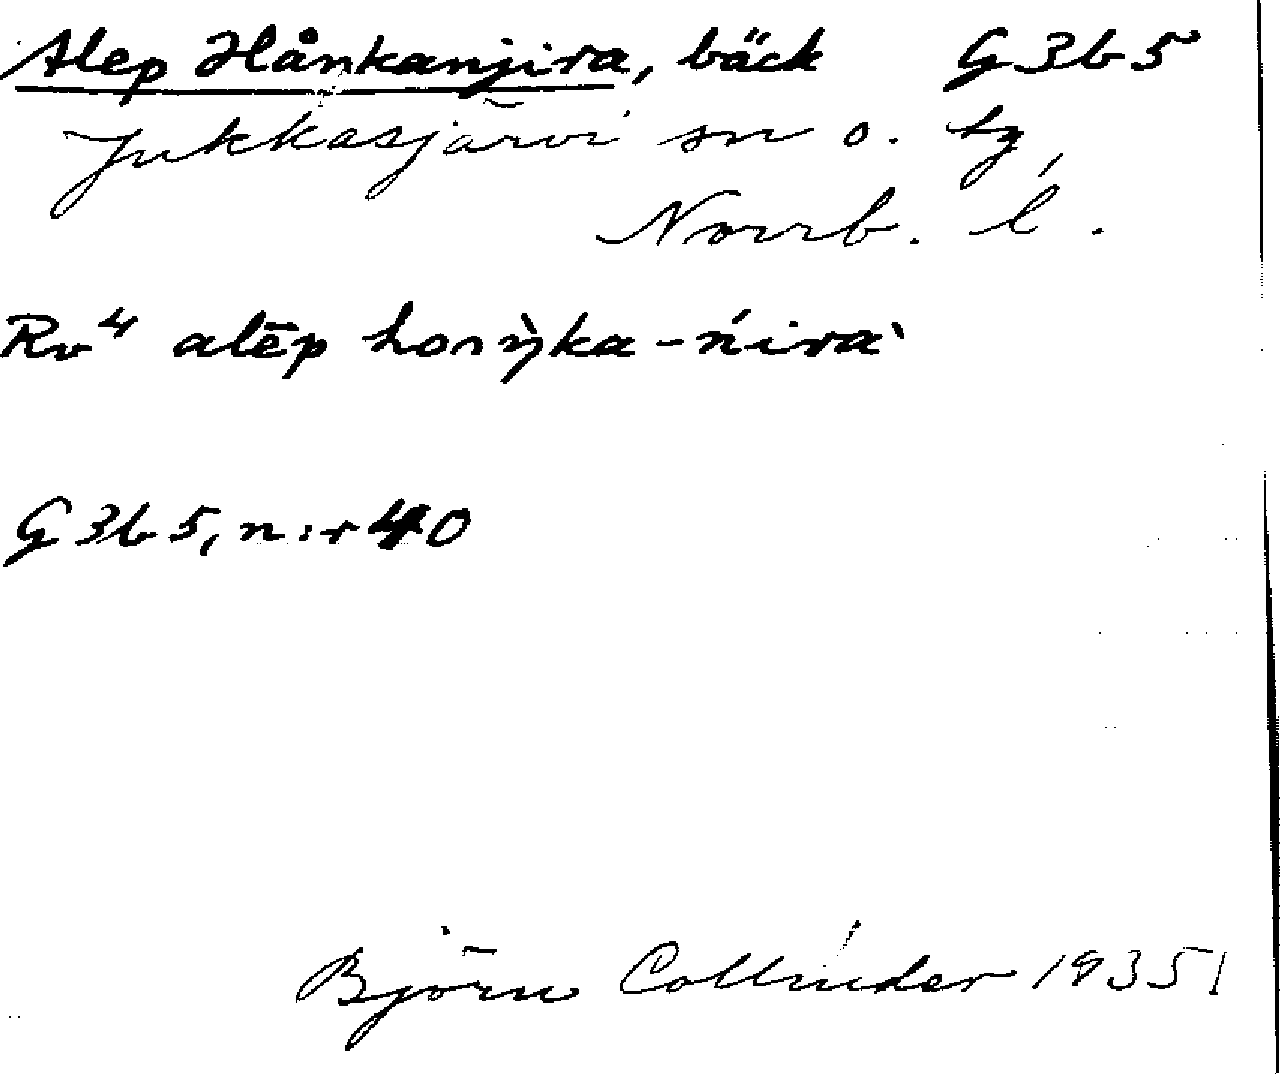 Alep Hånkanjira, bäck G3b5
Jukkasjärvi sn o. tg,
Norrb. l.
Rv⁴ alēp hoṇŋ̀ka-ńira`
G3b5, n:r 40
Björn Collinder 1935